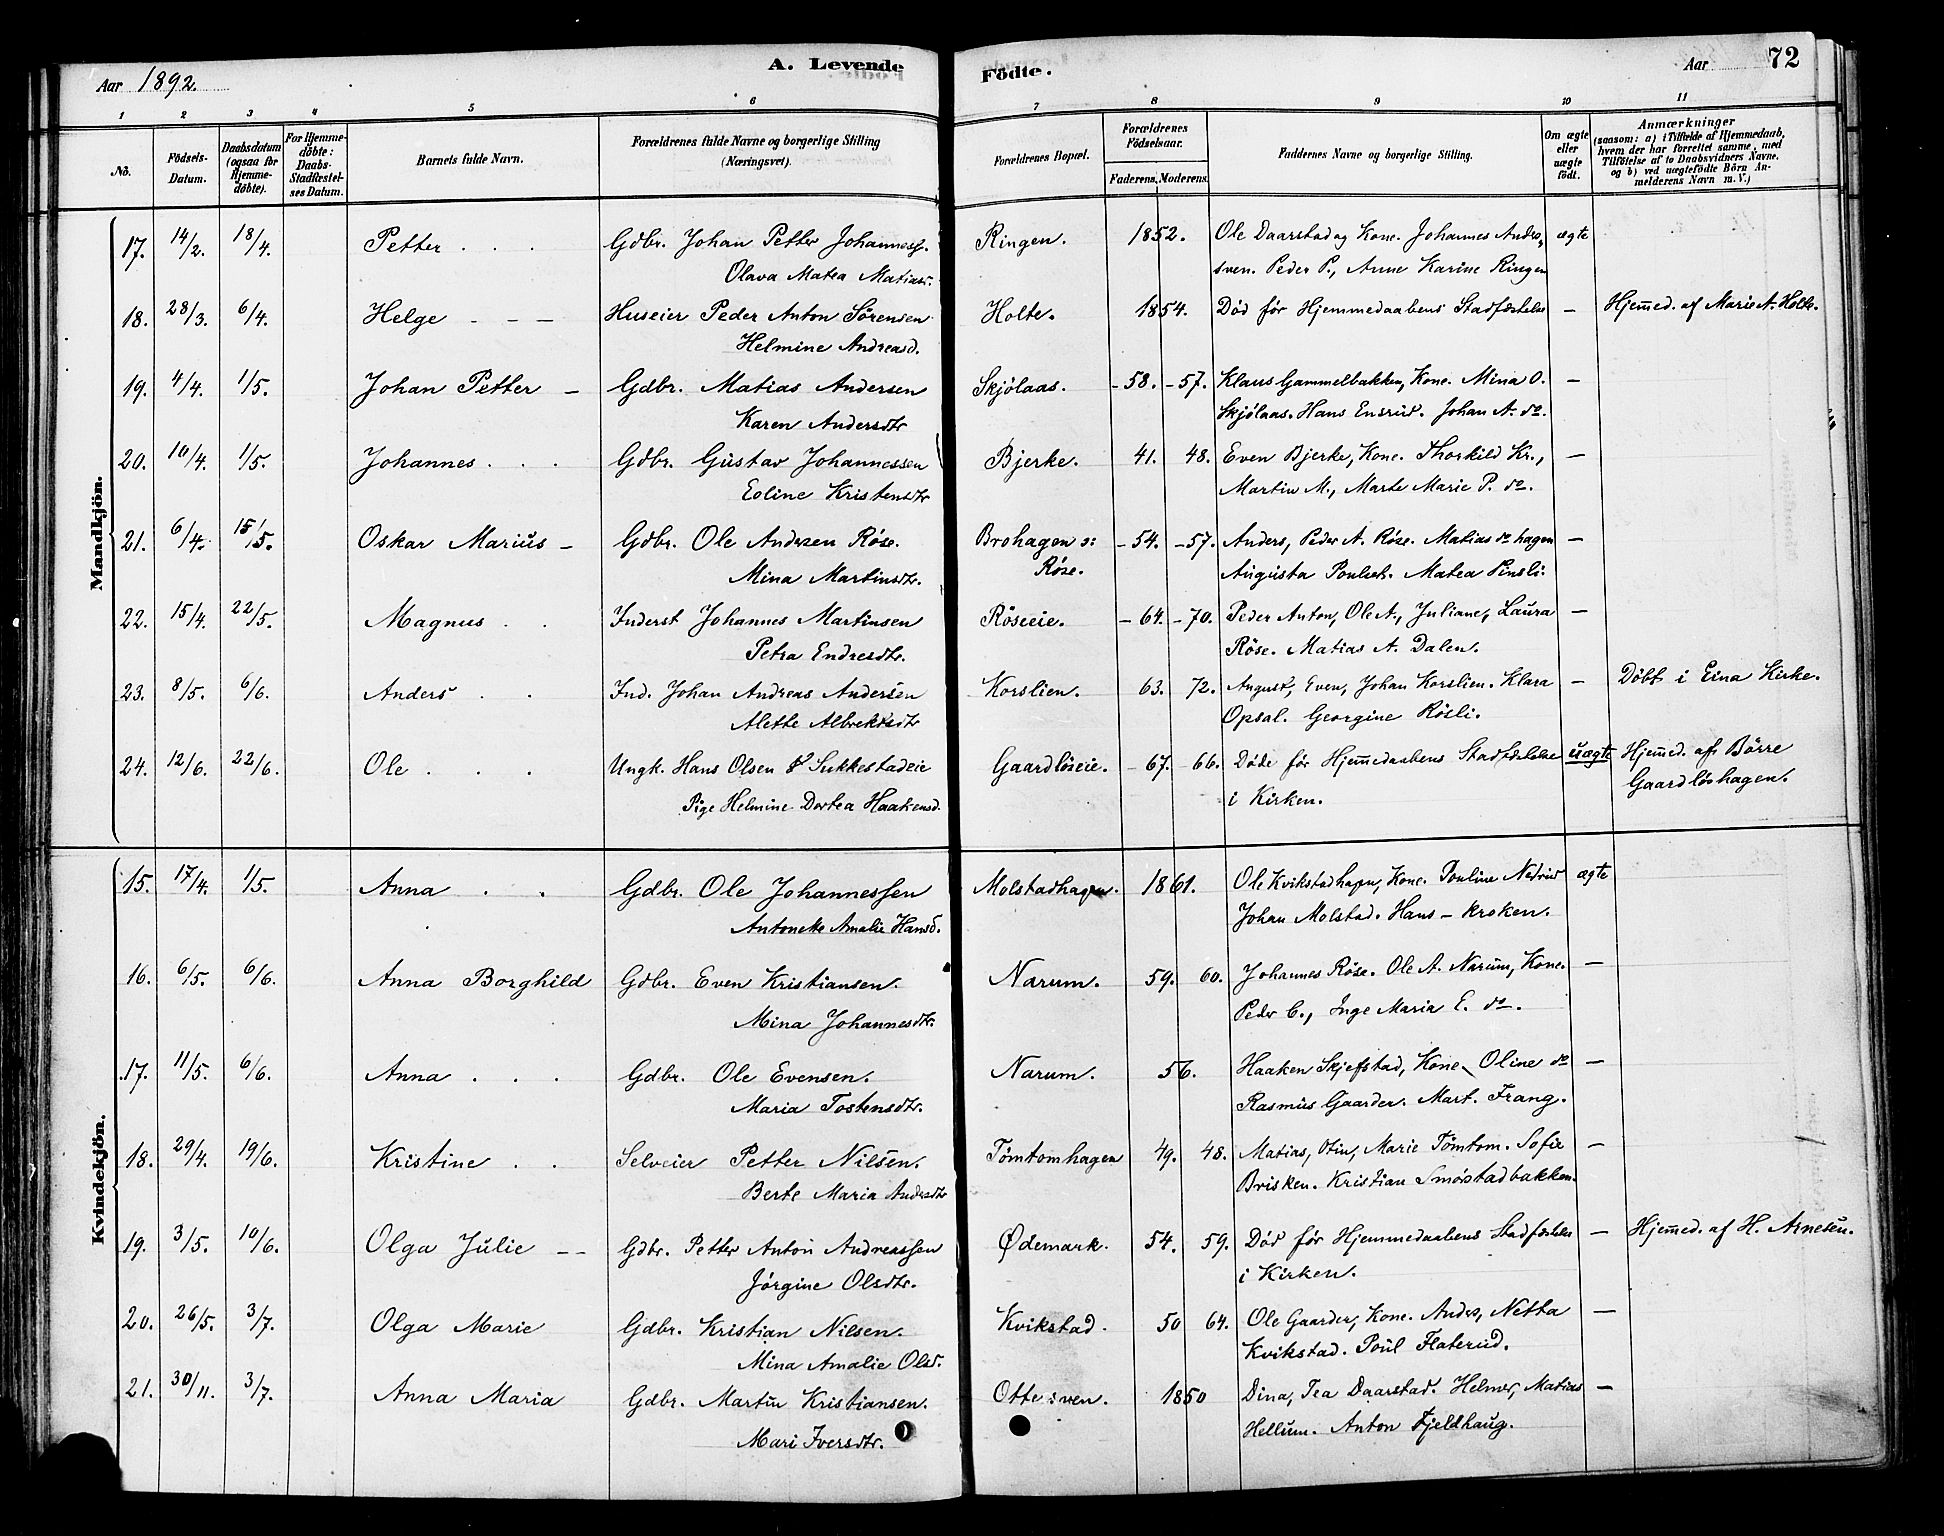 Aar 1892. A. Levende Födte. Aar 72
1 2 3 4 5 6 7 8 9 10 11
No. Födsels-Datum. Daabsdatum (ogsaa for Hjemme-döbte). For Hjemme-döbte: Daabs-Stadfæstel-ses Datum. Barnets fulde Navn. Forældrenes fulde Navne og borgerlige Stilling (Næringsvei). Forældrenes Bopæl. Forældrenes Födselsaar. Faderens. Moderens. Faddernes Navne og borgerlige Stilling. Om ægte eller uægte födt. Anmærkninger (saasom: a) i Tilfælde af Hjemmedaab, hvem der har forrettet samme, med Tilföielse af to Daabsvidners Navne, og b) ved uægtefödte Börn An-melderens Navn m. V.)
Mandkjön.
17. 14/2. 18/4. Petter . . . Gdbr. Johan Petter Johanness. Ringen. 1852. Ole Daarstad og Kone. Johannes Andr., ægte
Olava Matea Matiasd. sven. Peder P., Anne Karine Ringen
18. 28/3. 6/4. Helge - - - Huseier Peder Anton Sörensen Holte. 1854. Död för Hjemmedaabens Stadfæstelse — Hjemmed. af Marie A. Holte.
Helmine Andreasd.
19. 4/4. 1/5. Johan Petter - Gdbr. Matias Andersen Skjölaas. -58. -57. Klaus Gammelbakken, Kone. Mina O. —
Karen Andersdtr Skjölaas. Hans Ensrud. Johan A. do.
20. 10/4. 1/5. Johannes . . . Gdbr. Gustav Johannessen Bjerke. 41. 48. Even Bjerke, Kone. Thorkild Kr., —
Eoline Kristensdtr Martin M., Marte Marie P. do.
21. 6/4. 15/5. Oskar Marius - Gdbr. Ole Andersen Røse. Brohagen o: -54. -57. Anders, Peder A. Røse. Matias do hagen —
Mina Martinsdtr. Røse. Augusta Poulset. Matea Pinsli.
22. 15/4. 22/5. Magnus . . Inderst Johannes Martinsen Röseeie. -64. -70. Peder Anton, Ole A., Juliane, Laura —
Petra Endresdtr. Röse. Matias A. Dalen.
23. 8/5. 6/6. Anders . . Ind. Johan Andreas Andersen Korslien. 63. 72. August, Even, Johan Korslien. Klara — Döbt i Eina Kirke.
Alette Albrektsdtr Opsal. Georgine Rösli.
24. 12/6. 22/6. Ole . . . Ungk. Hans Olsen Sukkestadeie Gaardlöseie. -67. -66. Döde för Hjemmedaabens Stadfæstelse uægte Hjemmed. af Börre
Pige Helmine Dortea Haakensd. i Kirken. Gaardlöshagen.
Kvindekjön.
15. 17/4. 1/5. Anna . . Gdbr. Ole Johannessen Molstadhagen. 1861. Ole Kvikstadhagen, Kone. Pouline Nedrud ægte
Antonette Amalie Hansd. Johan Molstad. Hans - kroken.
16. 6/5. 6/6. Anna Borghild Gdbr. Even Kristiansen. Narum. 59. 60. Johannes Röse. Ole A. Narum, Kone. —
Mina Johannesdtr. Peder C., Inge Maria E. do.
17. 11/5. 6/6. Anna . . . Gdbr. Ole Evensen. Narum. 56. Haaken Skjefstad, Kone, Oline do —
Maria Tostensdtr. Rasmus Gaarder. Mart. Frang.
18. 29/4. 19/6. Kristine . . Selveier Petter Nilsen. Tömtomhagen 49. 48. Matias, Otin, Marie Tömtom. Sofie —
Berte Maria Andersdtr Brisken. Kristian Smörstadbakken.
19. 3/5. 10/6. Olga Julie -- Gdbr. Petter Anton Andreassen Ødemark. 54. 59. Död för Hjemmedaabens Stadfæstelse — Hjemmed. af H. Arnesen.
Jörgine Olsdtr. i Kirken.
20. 26/5. 3/7. Olga Marie Gdbr. Kristian Nilsen. Kvikstad. 50 64. Ole Gaarder, Kone. Anders, Netta —
Mina Amalie Olsd. Kvikstad. Poul Flaterud.
21. 30/11. 3/7. Anna Maria Gdbr. Martin Kristiansen. Ottesven. 1850 Dina, Tea Daarstad. Helmer, Matias —
Mari Iversdtr. Hellum. Anton Fjeldhaug.